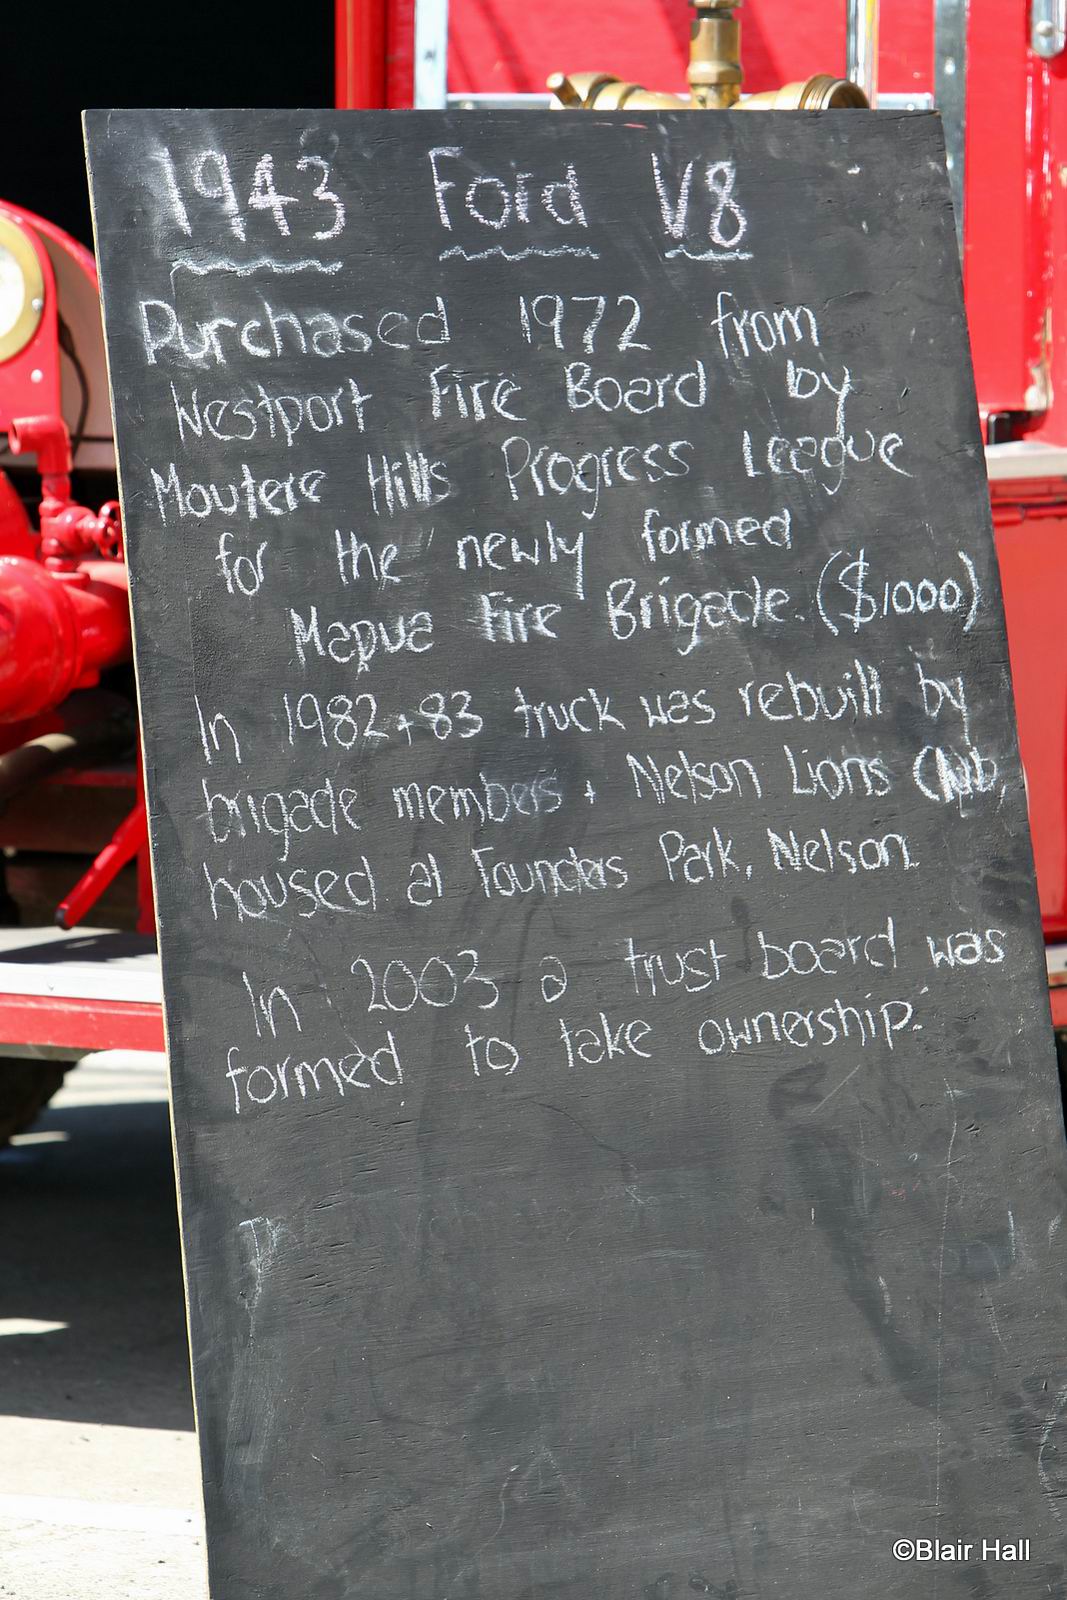 1943 Ford V8
Purchased 1972 from
Westport Fire Board by
Moutere Hills Progress League
for the newly formed
Mapua Fire Brigade. ($1000)
In 1982+83 truck was rebuilt by
brigade members + Nelson Lions Club,
housed at Founders Park, Nelson.
In 2003 a trust board was
formed to take ownership.
©Blair Hall